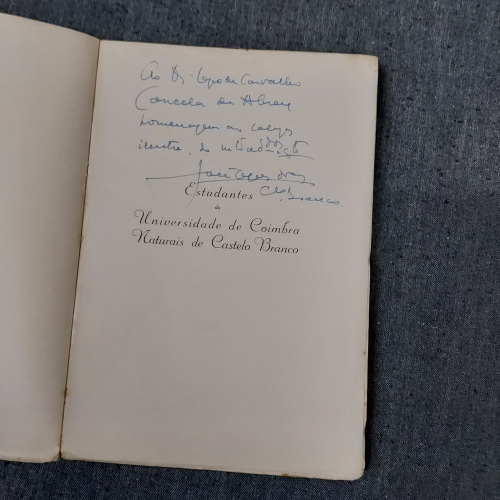 Ao Dr. Lopo de Carvalho
Cancela de Abreu
homenagem ao colega
ilustre, do
Estudantes
da
C. Branco
Universidade de Coimbra
Naturais de Castelo Branco